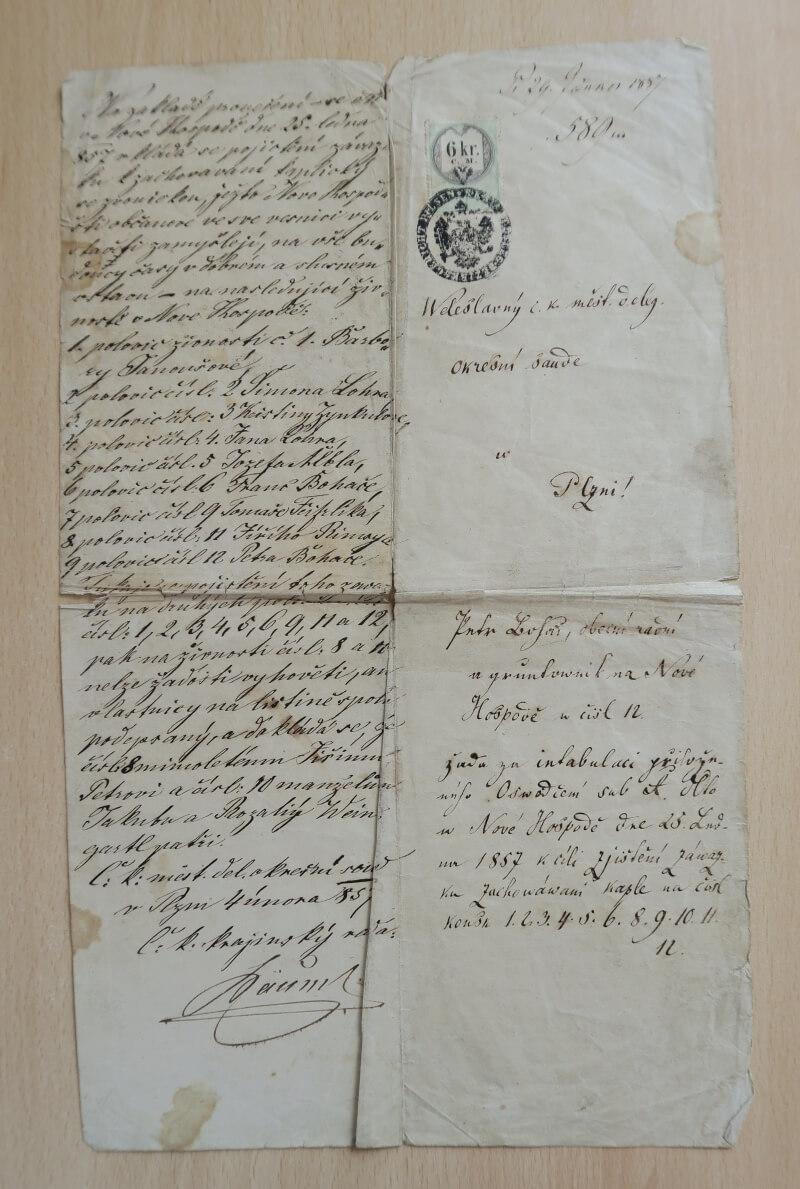 Na základě povolení – se dto
v Nové Hospodě dne 25. ledna
857 vkládá se pojištění závaz-
ku k zachovávání kapličky
se zvonickou, ježto Novo Hospod-
ští občanové ve své vesnici vy-
stavěti zamyšlejí, na vše bu-
doucy časy v dobrém a slušném
– na následující živ-
nosti v Nové Hospodě:
1. polovic živnosti č. 1. Barbo-
ry Janoušové,
2 polovic čísl: 2 Šimona Lohra,
3. polovic čísl: 3 Kristiny
4. polovic čísl: 4. Jana Lohra,
5 polovic čísl. 5 Jozefa
6 polovic čísl. 6 Franc Boháče,
7 polovic čísl 9 Tomáše
8 polovic čísl: 11 Jiřího
9 polovic čísl 12 Petra Boháče.
pojištění toho závaz-
ku na druhých
čísl: 1, 2, 3, 4, 5, 6, 9, 11 a 12,
pak na živnosti čísl: 8 a 10
nelze žádosti vyhověti, an
vlastnicy na listině
podepsaný, a dokládá se, že
čísl 8 Jiřímu
Petrovi a čísl: 10 manželům
Jakubu a Rozalii Wein-
gartl patří.
C: k: měst. del. okresní soud
v Plzni 4 února 857
C. k. krajinský rada:
Bäuml
P 29. 1857
589
6 kr.
C. M.
Weleslavný c. k. měst. deleg.
okresní saude
w
Plzni!
Petr Bohač, obecní radní
a gruntownik na Nové
Hospodě w čísl 12.
žádá za intabulaci přilože-
ného Oswědčení sub A. dto
w Nové Hospodě dne 25. Led-
na 1857 k cíli zjištění záwaz-
ku zachowáwaní kaple na čísl
konsk. 1. 2. 3. 4. 5. 6. 8. 9. 10. 11.
12.